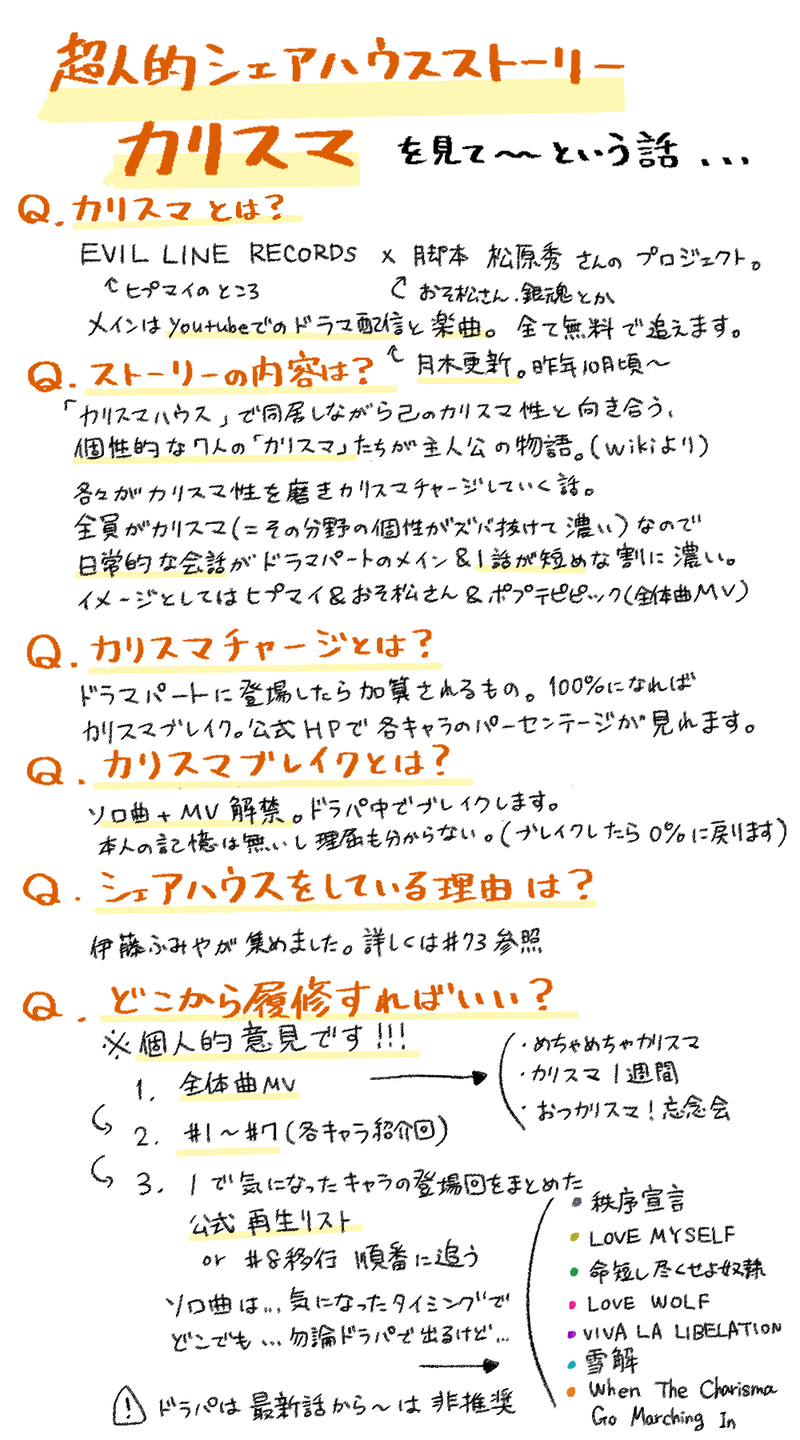 超人的シェアハウスストーリー
カリスマ を見て〜〜という話 ...
Q. カリスマ とは？
EVIL LINE RECORDS × 脚本 松原秀 さんの プロジェクト。
↑ヒプマイのところ ↑おそ松さん.銀魂とか
メインは Youtubeでのドラマ配信と楽曲。 全て無料で追えます。
↑月木更新。昨年10月頃〜
Q. ストーリーの内容は？
「カリスマハウス」で同居しながら己のカリスマ性と向き合う、
個性的な7人の「カリスマ」たちが主人公の物語。(wikiより)
各々がカリスマ性を磨きカリスマチャージしていく話。
全員がカリスマ(=その分野の個性がズバ抜けて濃い)なので
日常的な会話がドラマパートのメイン&1話が短めな割に濃い。
イメージとしてはヒプマイ&おそ松さん&ポプテピピック(全体曲MV)
Q. カリスマチャージとは？
ドラマパートに登場したら加算されるもの。100%になれば
カリスマブレイク。公式HPで各キャラのパーセンテージが見れます。
Q. カリスマブレイクとは？
ソロ曲+MV解禁。ドラパ中でブレイクします。
本人の記憶は無いし理屈も分からない。(ブレイクしたら0%に戻ります)
Q. シェアハウスをしている理由は？
伊藤ふみやが集めました。詳しくは#73参照
Q. どこから履修すればいい？
※個人的意見です!!!
1. 全体曲MV →
・めちゃめちゃカリスマ
・カリスマ1週間
・おつカリスマ！忘念会
2. #1〜#7(各キャラ紹介回)
3. 1で気になったキャラの登場回をまとめた
公式再生リスト
or #8移行 順番に追う
ソロ曲は... 気になったタイミングで
どこでも ... 勿論ドラパで出るけど...
→
・秩序宣言
・LOVE MYSELF
・命短し尽くせよ奴隷
・LOVE WOLF
・VIVA LA LIBELATION
・雪解
・When The Charisma
Go Marching In
! ドラパは最新話から〜は非推奨